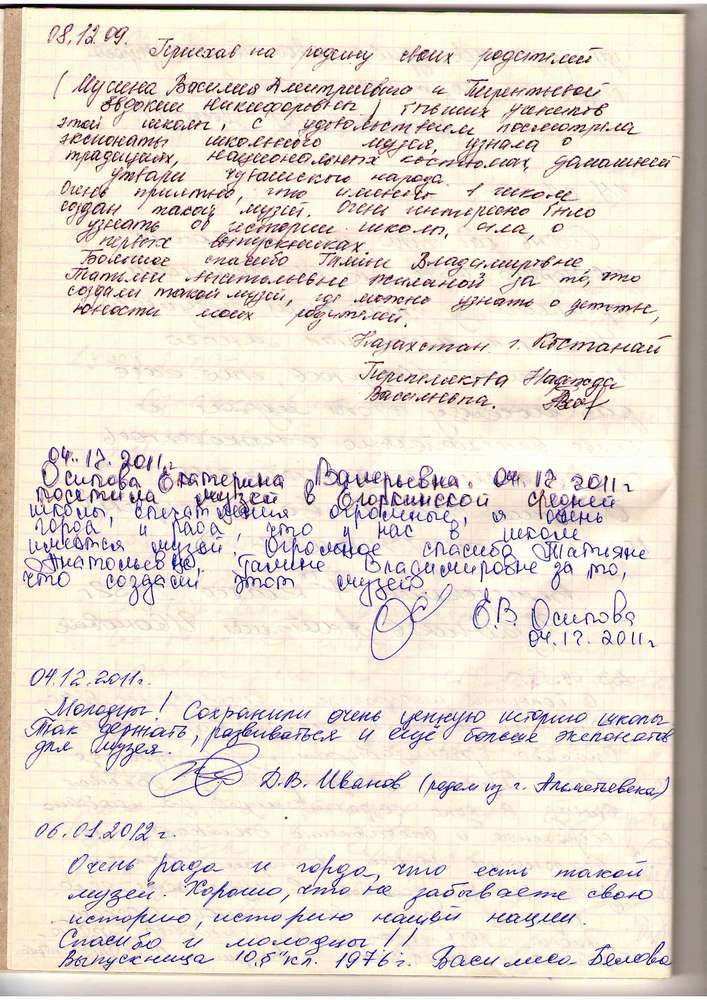 08.12.09.
Приехав на родину своих родителей
(Мусина Василия Дмитриевича и Терентьевой
Евдокии Никифоровны) бывших учеников
этой школы, с удовольствием посмотрела
экспонаты школьного музея, узнала о
традициях, национальных костюмах, домашней
утвари чувашского народа.
Очень приятно, что именно в школе
создан такой музей. Очень интересно было
узнать об истории школы, села, о
первых выпускниках.
Большое спасибо Галине Владимировне
Татьяне Анатольевне за то, что
создали такой музей, где можно узнать о детстве,
юности моих родителей.
Казахстан г. Костанай
Надежда
Васильевна.
04.12.2011г
Осипова Екатерина Валерьевна. 04.12.2011
посетила музей в Егоркинской средней
школы, впечатления огромные, я очень
горда и рада, что у нас в школе
имеется музей. Огромное спасибо Татьяне
Анатольевне, Галине Владимировне за то,
что создали этот музей.
Е.В. Осипова
04.12.2011г
04.12.2011г.
Молодцы! Сохранили очень ценную историю школы.
Так держать, развиваться и ещё больше экспонатов
для музея.
Д.В. Иванов (родом из г. Альметьевска)
06.01.2012г.
Очень рада и горда, что есть такой
музей. Хорошо, что не забываете свою
историю, историю нашей нации.
Спасибо и молодцы!!
Выпускница 10 "Б" кл. 1976г. Василиса Белова